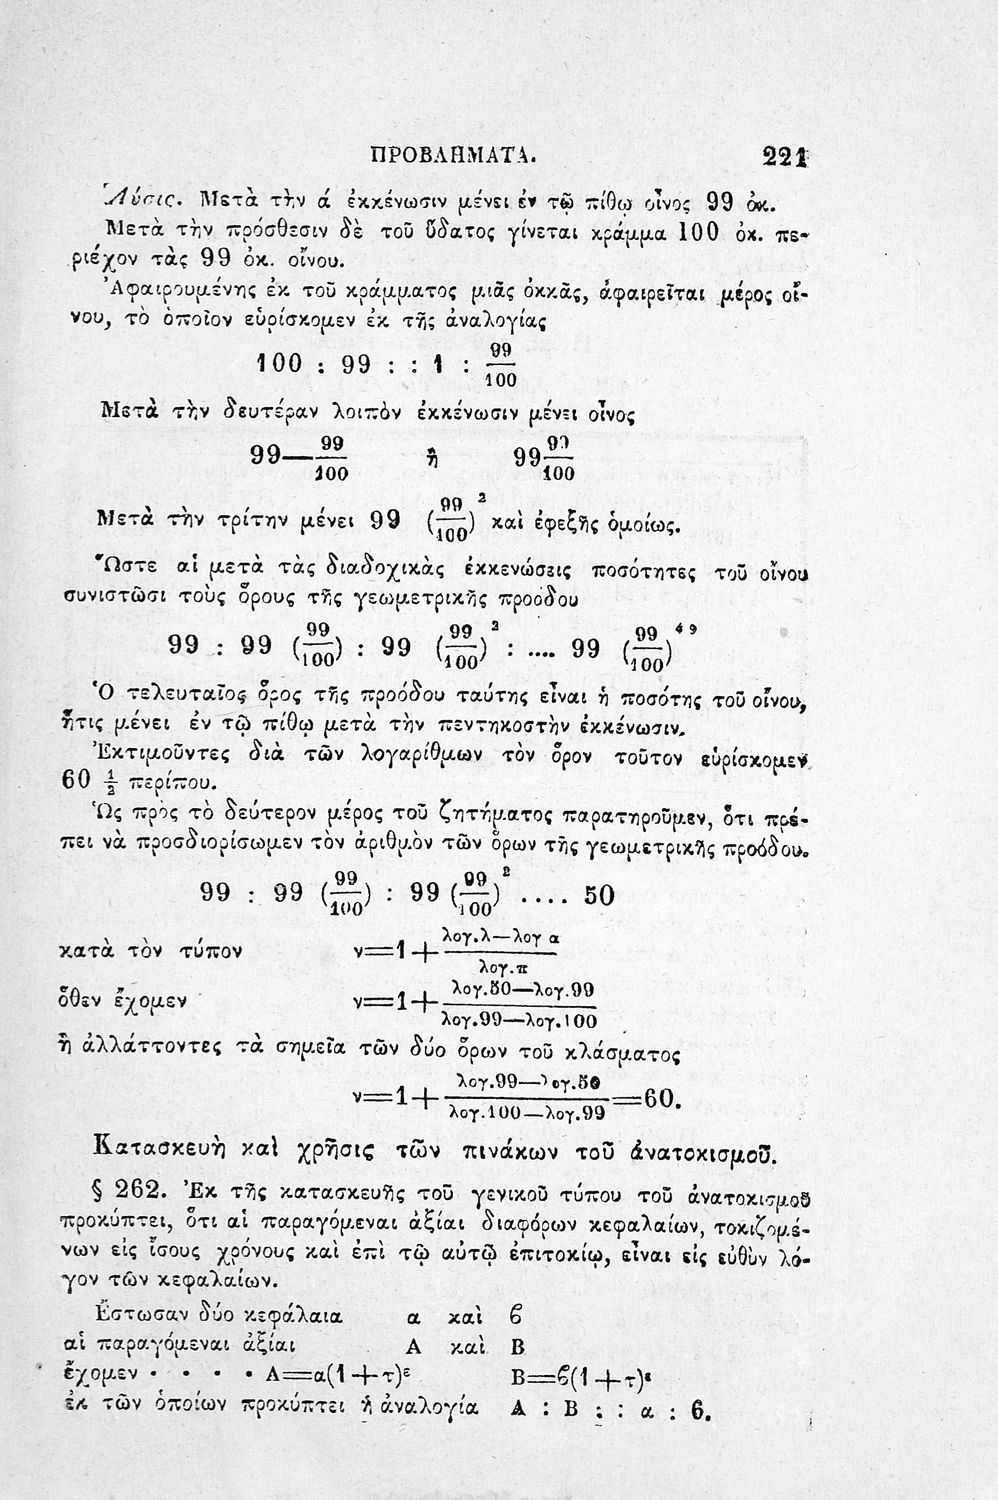 ΠΡΟΒΛΗΜΑΤΑ. 221
Λύσις. Μετὰ τὴν ά ἐκκένωσιν μένει ἐν τῷ πίθῳ οἶνος 99 ὀκ.
Μετὰ τὴν πρόσθεσιν δὲ τοῦ ὕδατος γίνεται κράμμα 100 ὀκ. πε-
ριέχον τὰς 99 ὀκ. οἴνου.
Ἀφαιρουμένης ἐκ τοῦ κράμματος μιᾶς ὀκκᾶς, ἀφαιρεῖται μέρος οἴ-
νου, τὸ ὁποῖον εὑρίσκομεν ἐκ τῆς ἀναλογίας
100 : 99 : : 1 : 99/100
Μετὰ τὴν δευτέραν λοιπὸν ἐκκένωσιν μένει οἶνος
99—99/100 ἢ 99 99/100
Μετὰ τὴν τρίτην μένει 99 (99/100)² καὶ ἐφεξῆς ὁμοίως.
Ὥστε αἱ μετὰ τὰς διαδοχικὰς ἐκκενώσεις ποσότητες τοῦ οἴνου
συνιστῶσι τοὺς ὅρους τῆς γεωμετρικῆς προόδου
99 : 99 (99/100) : 99 (99/100)² : .... 99 (99/100)⁴⁹
Ὁ τελευταῖος ὅρος τῆς προόδου ταύτης εἶναι ἡ ποσότης τοῦ οἴνου,
ἥτις μένει ἐν τῷ πίθῳ μετὰ τὴν πεντηκοστὴν ἐκκένωσιν.
Ἐκτιμοῦντες διὰ τῶν λογαρίθμων τὸν ὅρον τοῦτον εὑρίσκομεν
60 ½ περίπου.
Ὡς πρὸς τὸ δεύτερον μέρος τοῦ ζητήματος παρατηροῦμεν, ὅτι πρέ-
πει νὰ προσδιορίσωμεν τὸν ἀριθμὸν τῶν ὅρων τῆς γεωμετρικῆς προόδου.
99 : 99 (99/100) : 99 (99/100)² .... 50
κατὰ τὸν τύπον ν=1+ λογ.λ—λογ α / λογ.π
ὅθεν ἔχομεν ν=1+ λογ.50—λογ.99 / λογ.99—λογ.100
ἢ ἀλλάττοντες τὰ σημεῖα τῶν δύο ὅρων τοῦ κλάσματος
ν=1+ λογ.99—λογ.50 / λογ.100—λογ.99 =60.
Κατασκευὴ καὶ χρῆσις τῶν πινάκων τοῦ ἀνατοκισμοῦ.
§ 262. Ἐκ τῆς κατασκευῆς τοῦ γενικοῦ τύπου τοῦ ἀνατοκισμοῦ
προκύπτει, ὅτι αἱ παραγόμεναι ἀξίαι διαφόρων κεφαλαίων, τοκιζομέ-
νων εἰς ἴσους χρόνους καὶ ἐπὶ τῷ αὐτῷ ἐπιτοκίῳ, εἶναι εἰς εὐθὺν λό-
γον τῶν κεφαλαίων.
Ἔστωσαν δύο κεφάλαια α καὶ ϐ
αἱ παραγόμεναι ἀξίαι Α καὶ Β
ἔχομεν · · · · Α=α(1+τ)ᵋ Β=ϐ(1+τ)ᵋ
ἐκ τῶν ὁποίων προκύπτει ἡ ἀναλογία Α : Β : : α : ϐ.